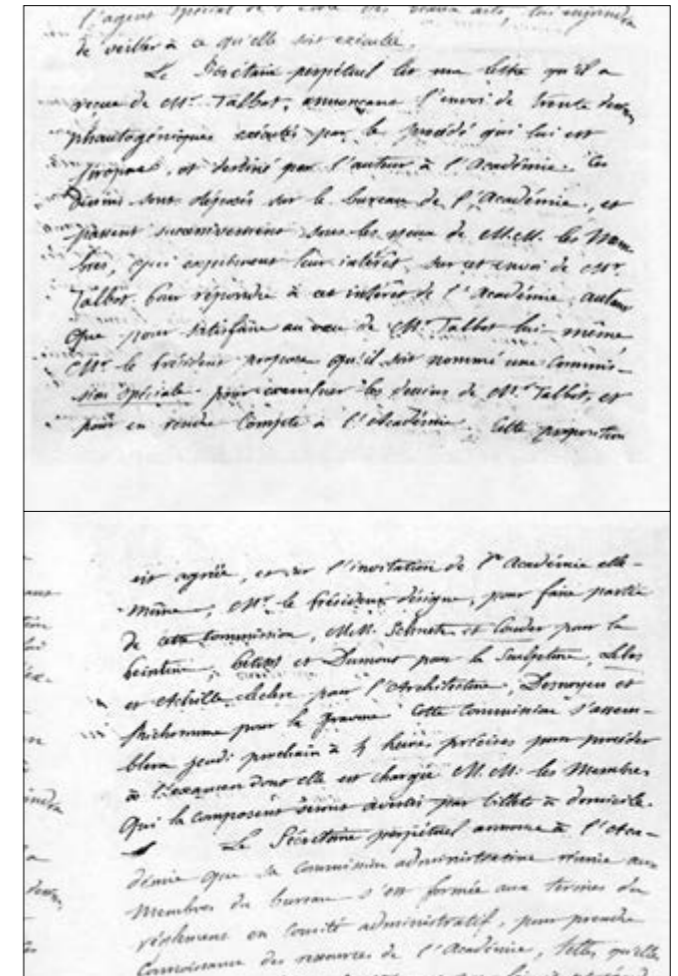 l'agent spécial de l'école des beaux arts, lui enjoindra
de veiller à ce qu'elle soit exécutée.
Le Secrétaire perpétuel lit une lettre qu'il a
reçue de Mr. Talbot, annonçant l'envoi de trente dessins
photogéniques exécutés par le procédé qui lui est
propre, et destiné par l'auteur à l'académie. Ces
dessins sont déposés sur le bureau de l'académie, et
passent successivement sous les yeux de M.M. les Mem-
bres, qui expriment leur intérêt sur cet envoi de Mr.
Talbot. Pour répondre à cet intérêt de l'académie, autant
que pour satisfaire au vœu de Mr Talbot lui-même,
Mr le Président propose qu'il soit nommé une Commis-
sion spéciale pour examiner les dessins de Mr Talbot, et
pour en rendre Compte à l'Académie. Cette proposition
est agréée, et sur l'invitation de l'Académie elle-
même, Mr le Président désigne, pour faire partie
de cette Commission, M.M. Schnetz et Couder pour la
Peinture, Petitot et Dumont pour la Sculpture, Lebas
et Achille Leclère pour l'Architecture, Desnoyers et
Richomme pour la gravure. Cette Commission s'assem-
blera jeudi prochain à heures précises pour procéder
à l'examen dont elle est chargée. M.M. les Membres
Qui la composent seront avertis par billets à domicile.
Le Secrétaire perpétuel annonce à l'Aca-
démie que la Commission administrative réunie aux
Membres du bureau s'est formée aux termes du
règlement en Comité administratif, pour prendre
Connaissance des ressources de l'Académie, telles qu'elles